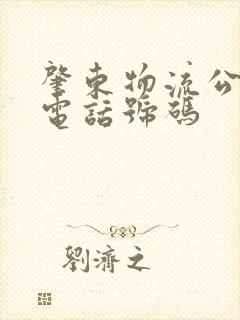 肇東物流公
電話號碼
劉濟之